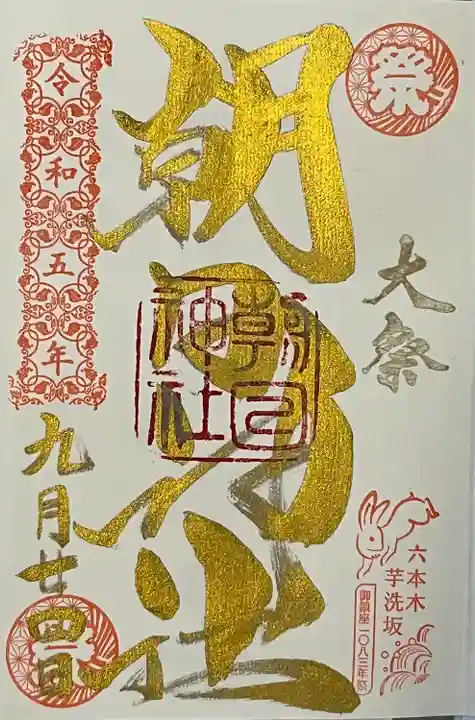 祭
大祭
六本木
芋洗坂
御鎮座一〇八三年祭
朝日神社
朝日
神社
令和五年
九月廿四日
祭